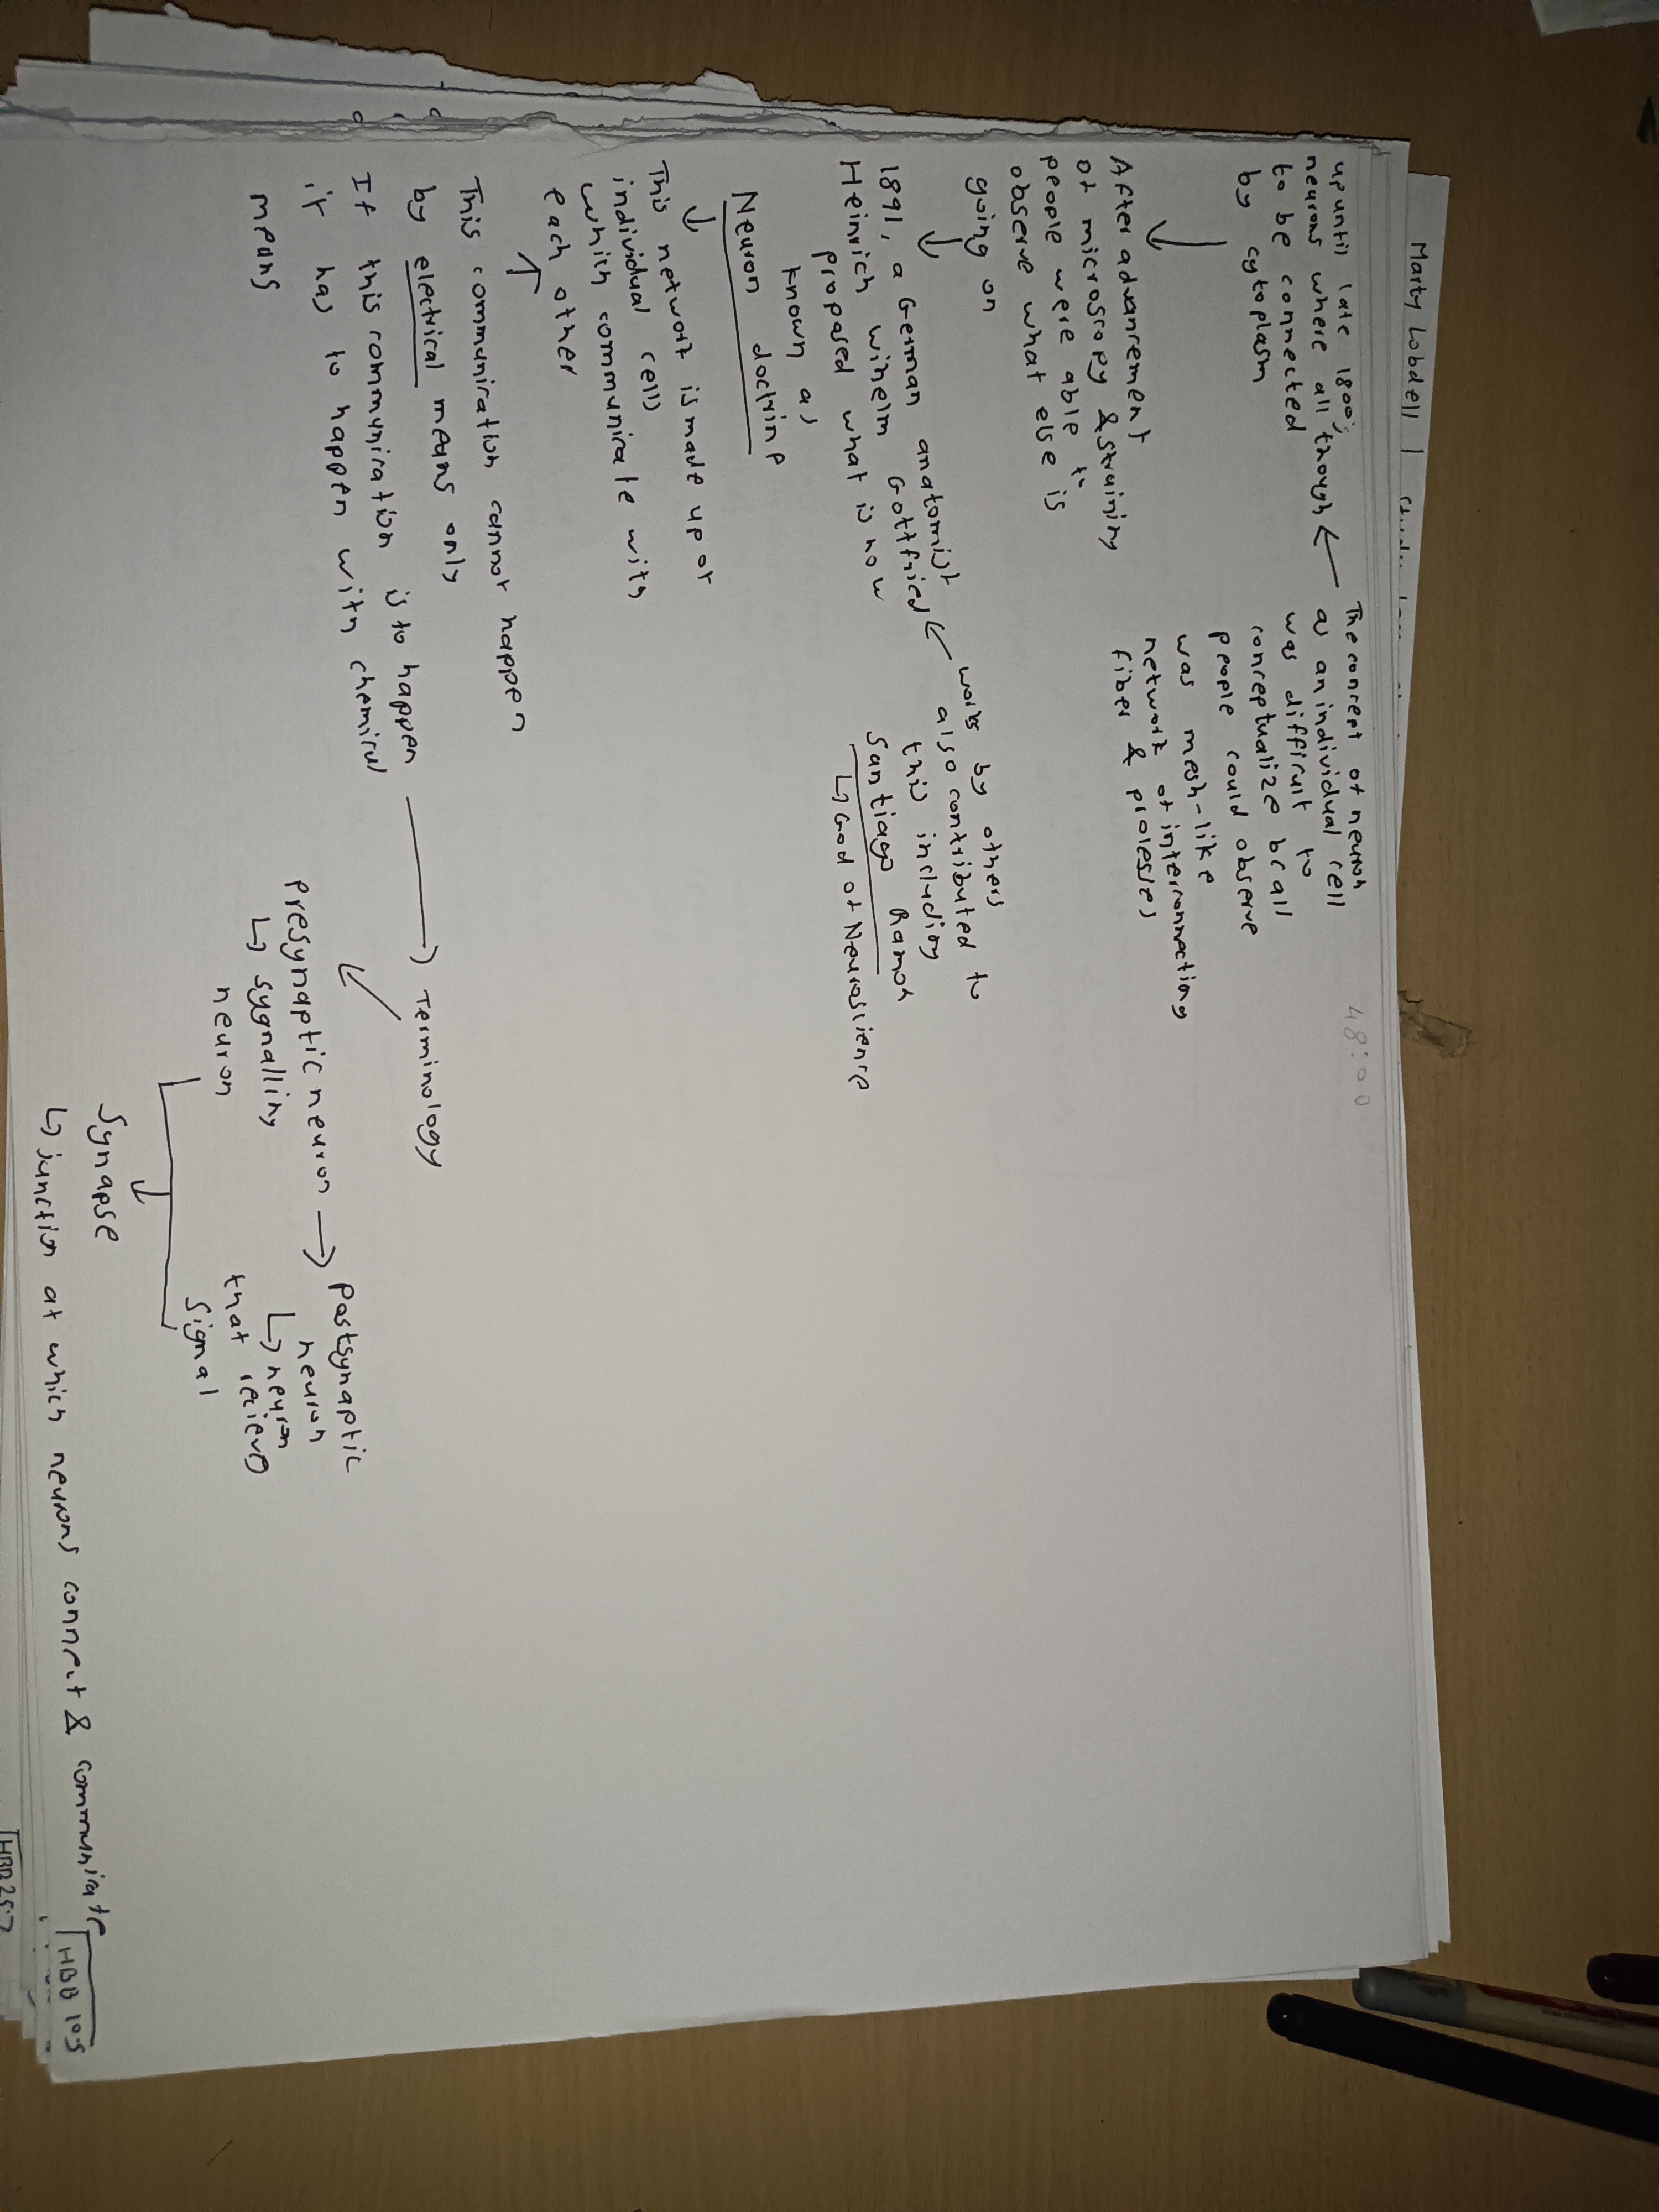 Marty Lobdell |
48:00
up until late 1800s,
neurons where all though
to be connected
by cytoplasm
The concept of neuron
as an individual cell
was difficult to
conceptualize bcall
people could observe
was mesh-like
network of interconnecting
fiber & processes
After advancement
of microscopy & staining
people were able to
observe what else is
going on
1891, a German anatomist
Heinrich Wihelm Gottfried
proposed what is now
known as
Neuron doctrine
works by others
also contributed to
this including
Santiago Ramon
↳ God of Neuroscience
This network is made up of
individual cells
which communicate with
each other
This communication cannot happen
by electrical means only
If this communication is to happen
it has to happen with chemical
means
Terminology
Presynaptic neuron → Postsynaptic
neuron
↳ sygnalling
neuron
↳ neuron
that recieve
signal
Synapse
↳ junction at which neurons connect & communicate
HBB 10.5
HBB 25.7